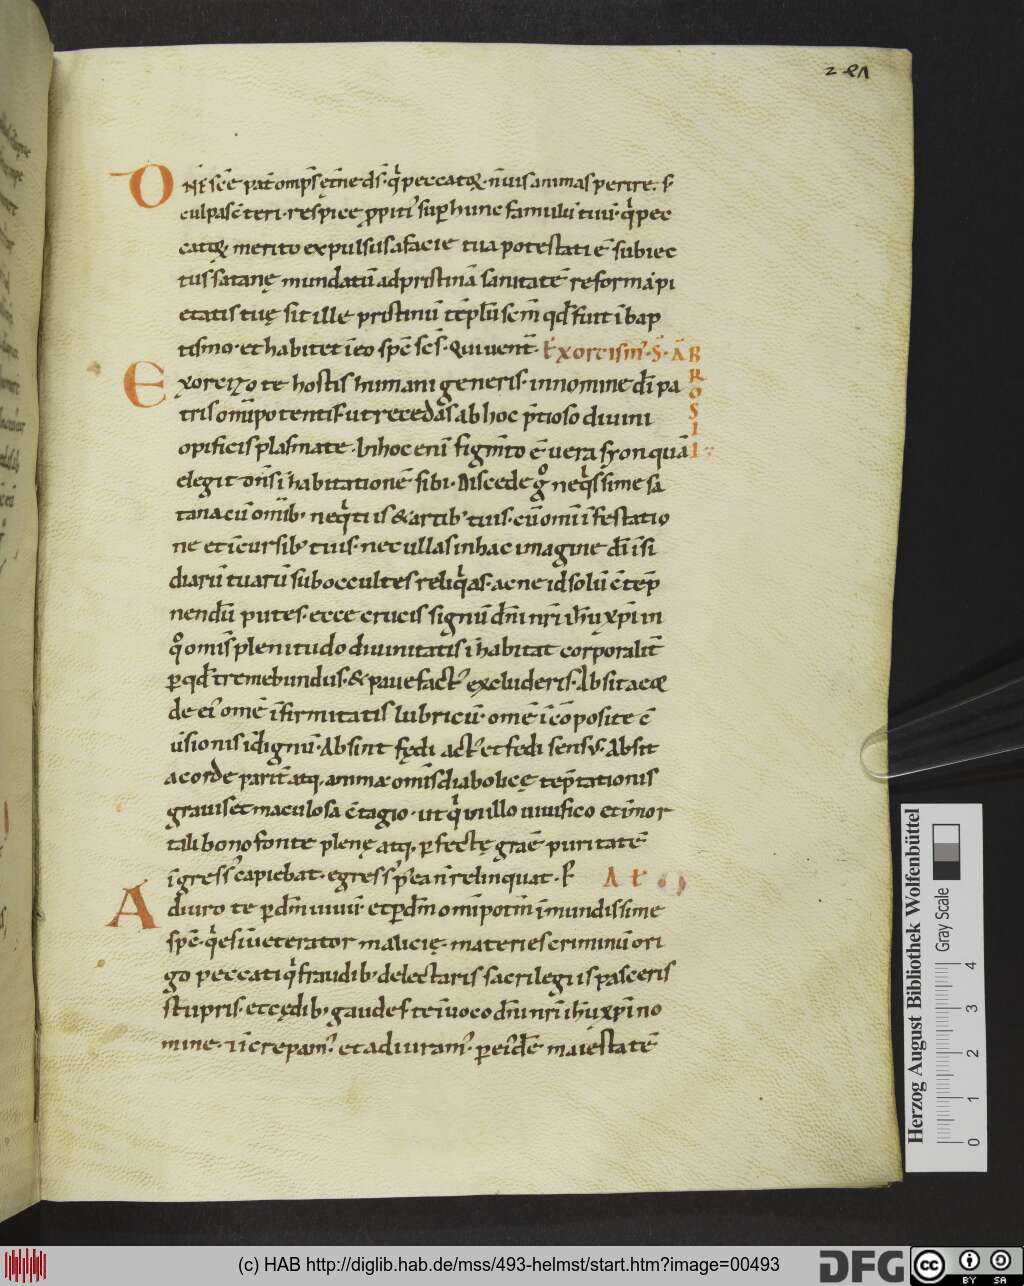 ONĒ sc̄e pat̄ omp̄s ęt̄ne ds̄ q̇ peccatoꝝ n̄ uis animas perire. s;
culpas c̄teri. respice ꝓpiti᾽ sup hunc famulū tuū. q̇ pec
catoꝝ merito expulsus a facie tua potestati ē subiec
tus satanę mundatū ad pristinā sanitatē reforma pi
etatis tuę sit ille pristinū tēplū sc̄m qd̄ fuit ī bap
tismo. et habitet ī eo spc̄ sc̄s. Qui uent̄. Exorcism᾽ S. AB
ROSII
Exorcizo te hostis humani generis. in nomine dī pa
tris omīpotentis ut recedas ab hoc p̄tioso diuini
opificis plasmate. In hoc enī figm̄to ē uera syon quā
elegit dn̄s inhabitationē sibi. Discede g̊ neq̇ssime sa
tana cū omīb; neq̇tiis & artib; tuis. cū omī īfestatio
ne et īcursib; tuis. nec ullas in hac imagine dī īsi
diarū tuarū sub occultes reliq̇as. ac ne id solū c̄tēp
nendū putes. ecce crucis signū dn̄i nr̄i ih̄u xp̄i in
q̊ omīs plenitudo diuinitatis ihabitat corporalit̄
ꝑ qd̄ tremebundus & pauefact᾽ excluderis. Absit aeꝙ
de ei᾽ omē īfirmitatis lubricū. omē īcōposite c̄
uersionis īdignū. Absint fędi act᾽ et fedi sens᾽. Absit
a corde parit̄ atq; anima omīs diabolicę tēptationis
grauis et maculosa c̄tagio. ut q̇ in illo uiuifico et īmor
tali bono fonte plenę atq; ꝑfectę grāē puritatē
īgress᾽ capiebat. egress᾽ p̄eant̄ relinquat.
Adiuro te ꝑ dm̄ uiuū. et ꝑ dm̄ omīpotm̄ īmundissime
spc̄. q̇ es īueterator malicię. materies criminū ori
go peccati q̇ fraudib; delectaris sacrilegiis pasceris
stupris. et cędib; gaudes te īuoco dn̄i nr̄i ih̄u xp̄i no
mine. īcrepam᾽. et adiuram᾽. ꝑ ei᾽dē maiestatē
Herzog August Bibliothek Wolfenbüttel
Gray Scale
0 1 2 3 4
(c) HAB http://diglib.hab.de/mss/493-helmst/start.htm?image=00493
DFG
cc BY SA